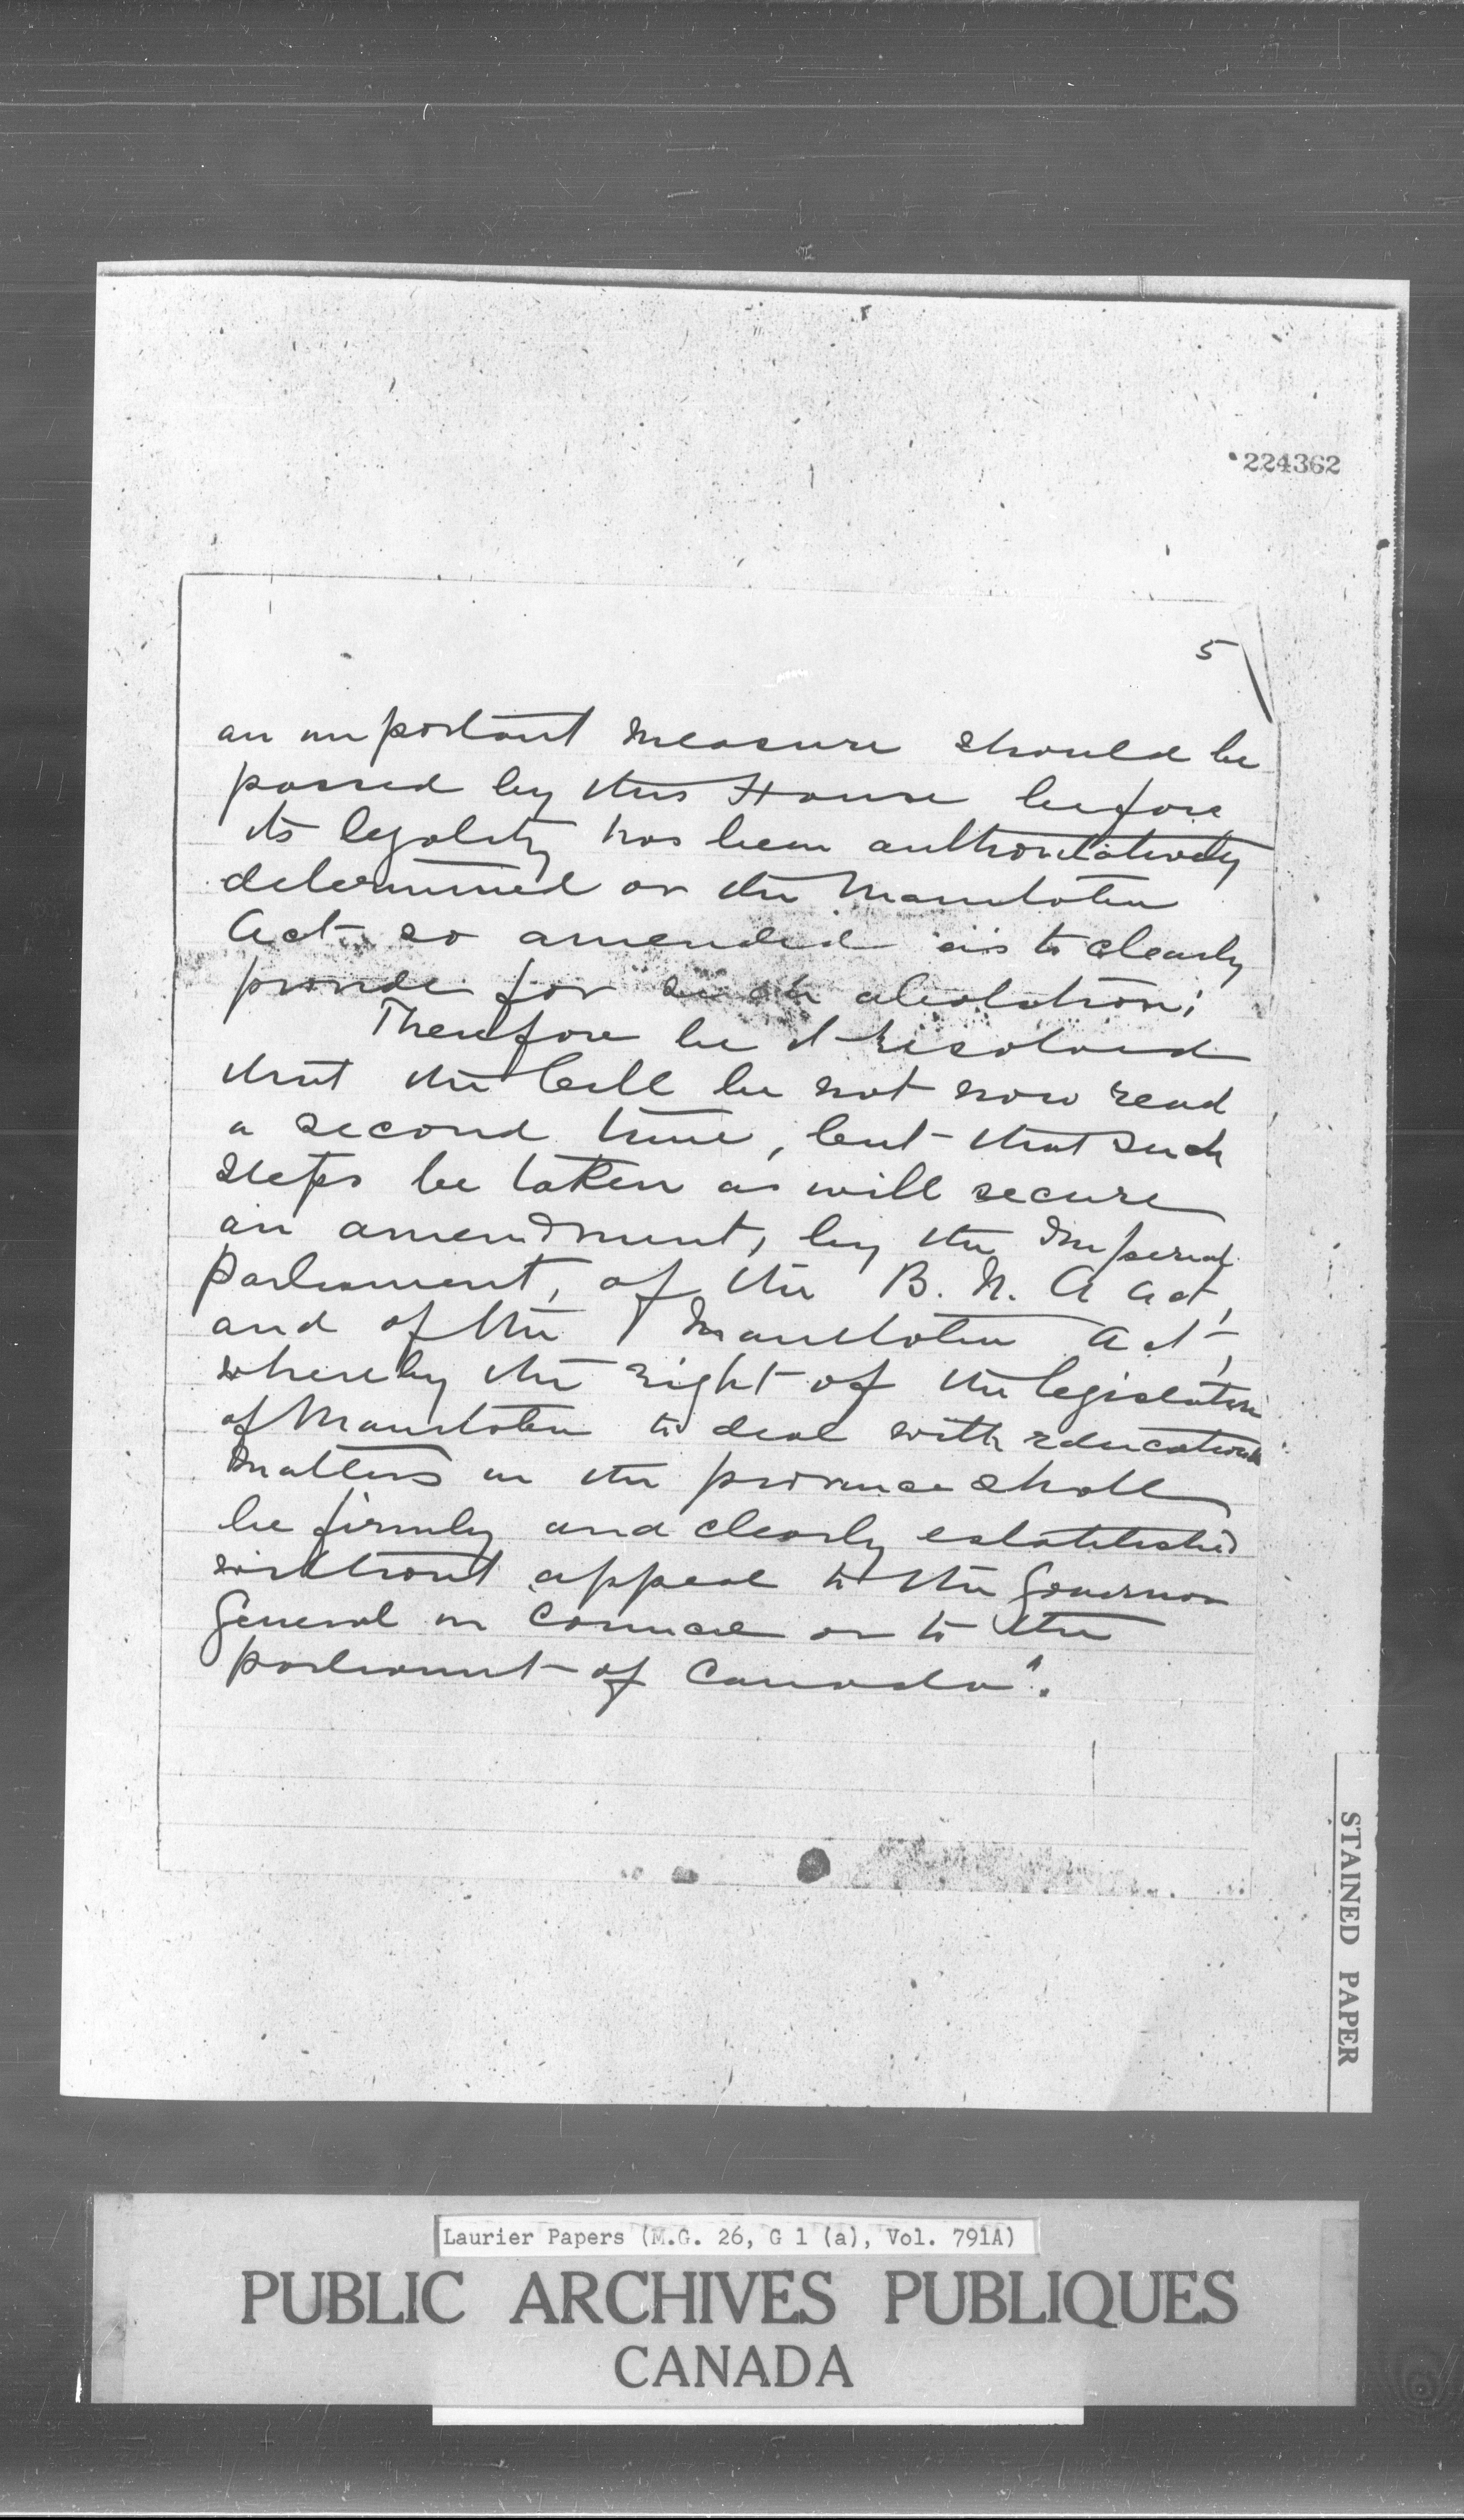 224362
5
an important measure should be
passed by this House before
its legality has been authoritatively
determined or the Manitoba
Act so amended as to clearly
provide for such abolition;
Therefore be it resolved
that the bill be not now read
a second time, but that such
steps be taken as will secure
an amendment, by the Imperial
Parliament, of the B. N. A Act,
and of the Manitoba Act,
whereby the right of the legislature
of Manitoba to deal with educational
matters in the province shall
be firmly and clearly established
without appeal to the Governor
General in Council or to the
parliament of Canada".
STAINED PAPER
Laurier Papers (M.G. 26, G 1 (a), Vol. 791A)
PUBLIC ARCHIVES PUBLIQUES
CANADA